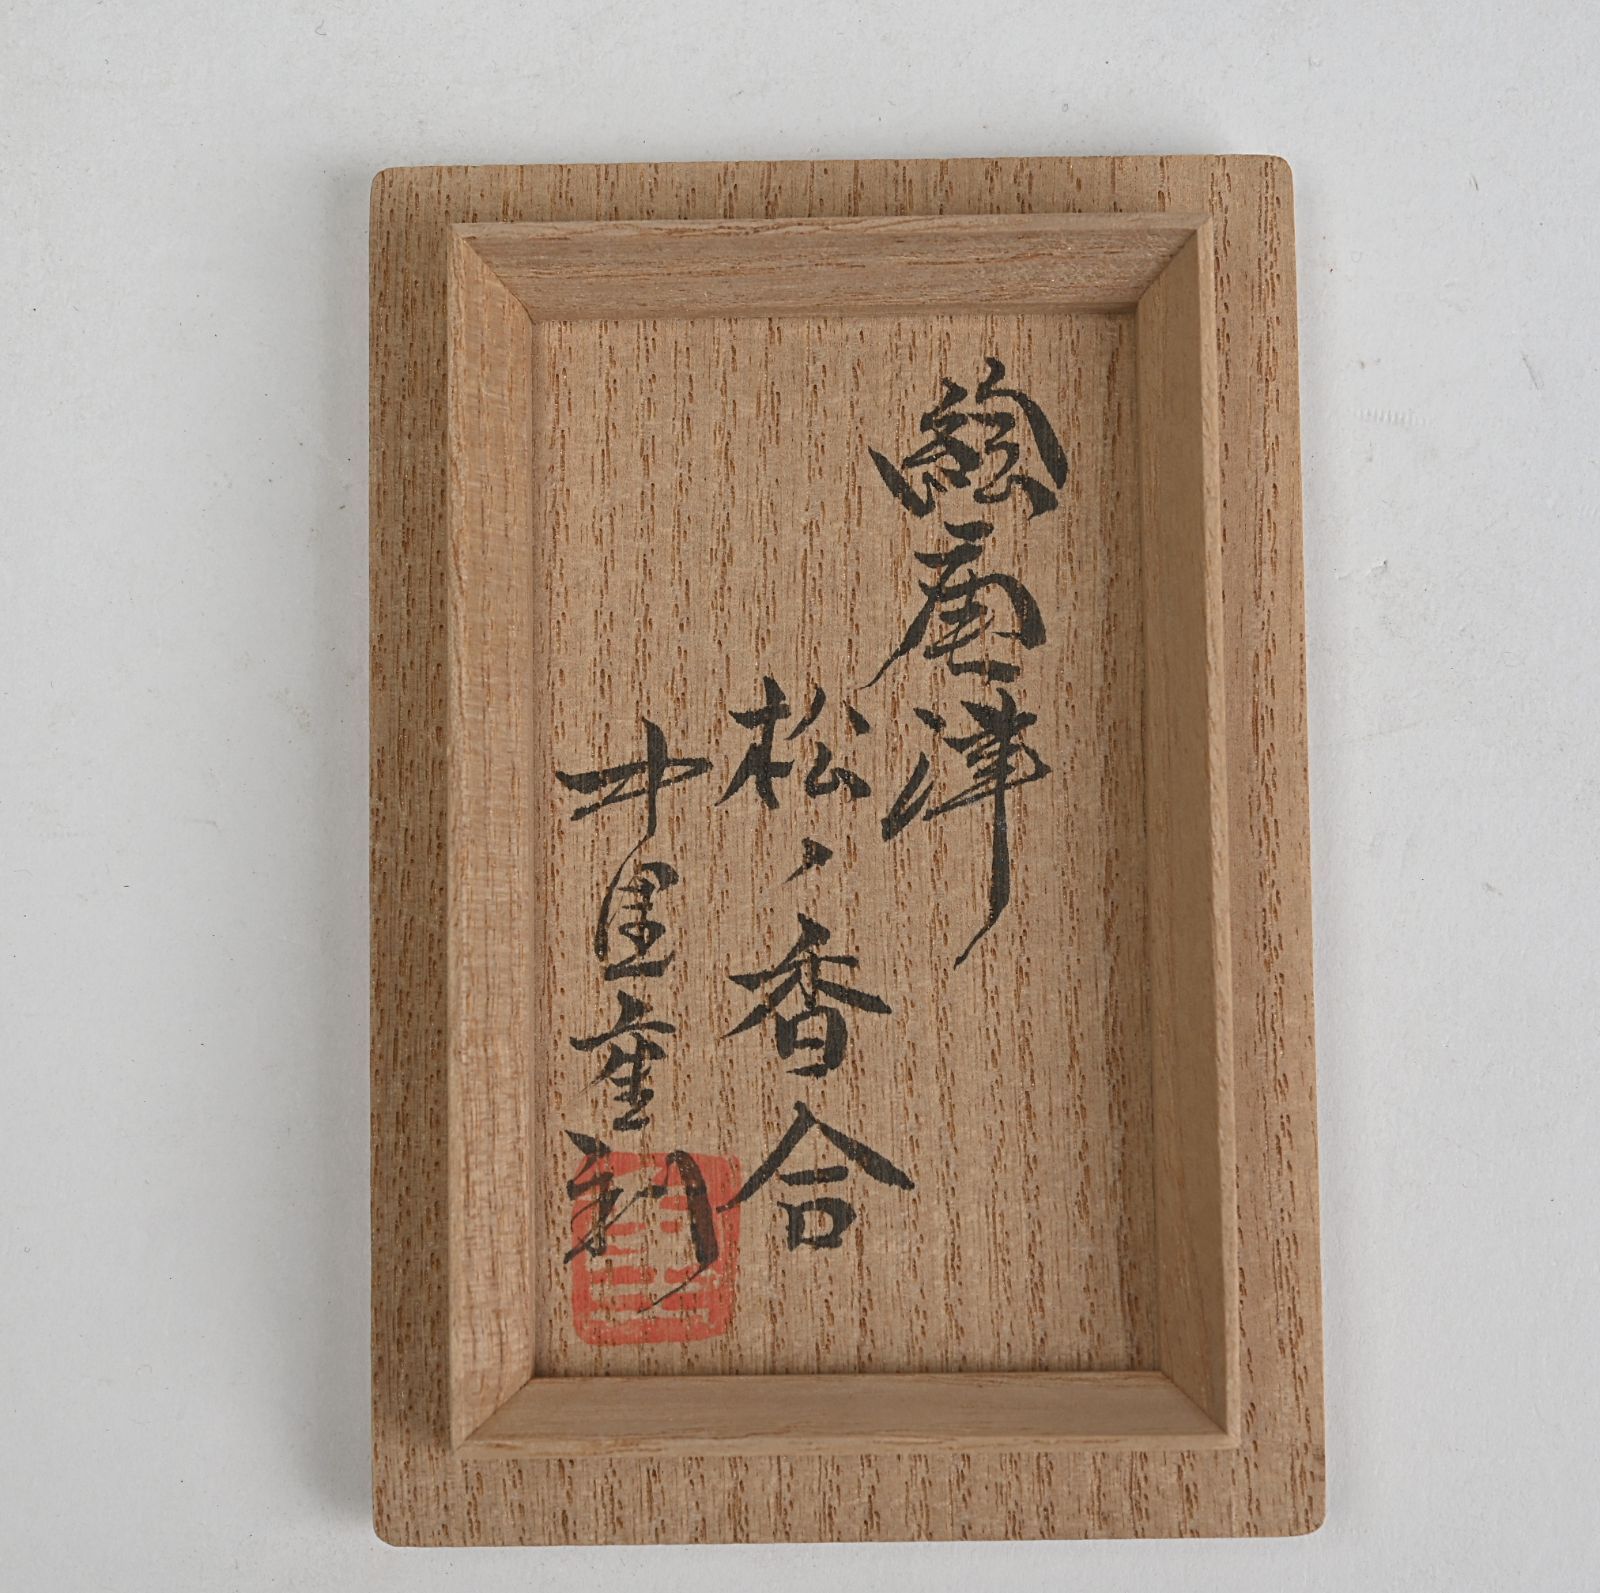 絵唐津
松ノ香合
中里重利